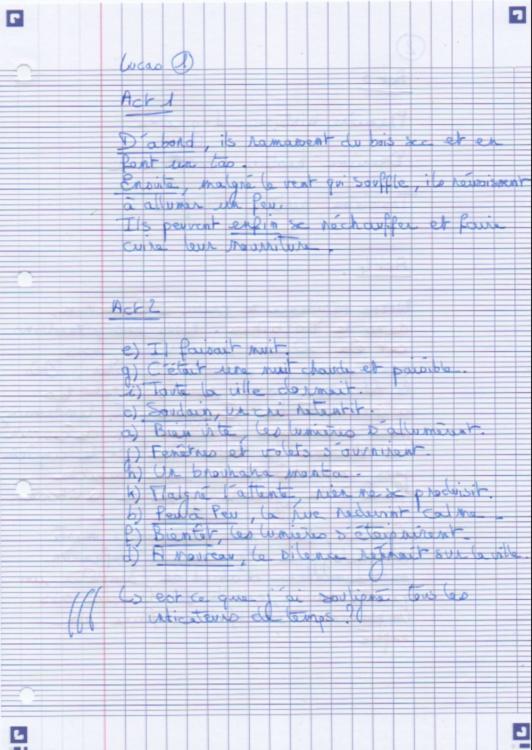 Lucas ①
Act 1
D'abord, ils ramassent du bois sec et en
font un tas.
Ensuite, malgré le vent qui souffle, ils réussissent
à allumer un feu.
Ils peuvent enfin se réchauffer et faire
cuire leur nourriture.
Act 2
e) Il faisait nuit.
g) C'était une nuit chaude et paisible.
i) Toute la ville dormait.
c) Soudain, un cri retentit.
a) Bien vite, les lumières s'allumèrent.
j) Fenêtres et volets s'ouvrirent.
h) Un brouhaha monta.
k) Malgré l'attente, rien ne se produisit.
b) Peu à Peu, la rue redevint calme.
f) Bientôt, les lumières s'éteignirent.
d) A nouveau, le silence régnait sur la ville
↳ est ce que j'ai souligné tous les
indicateurs de temps ?